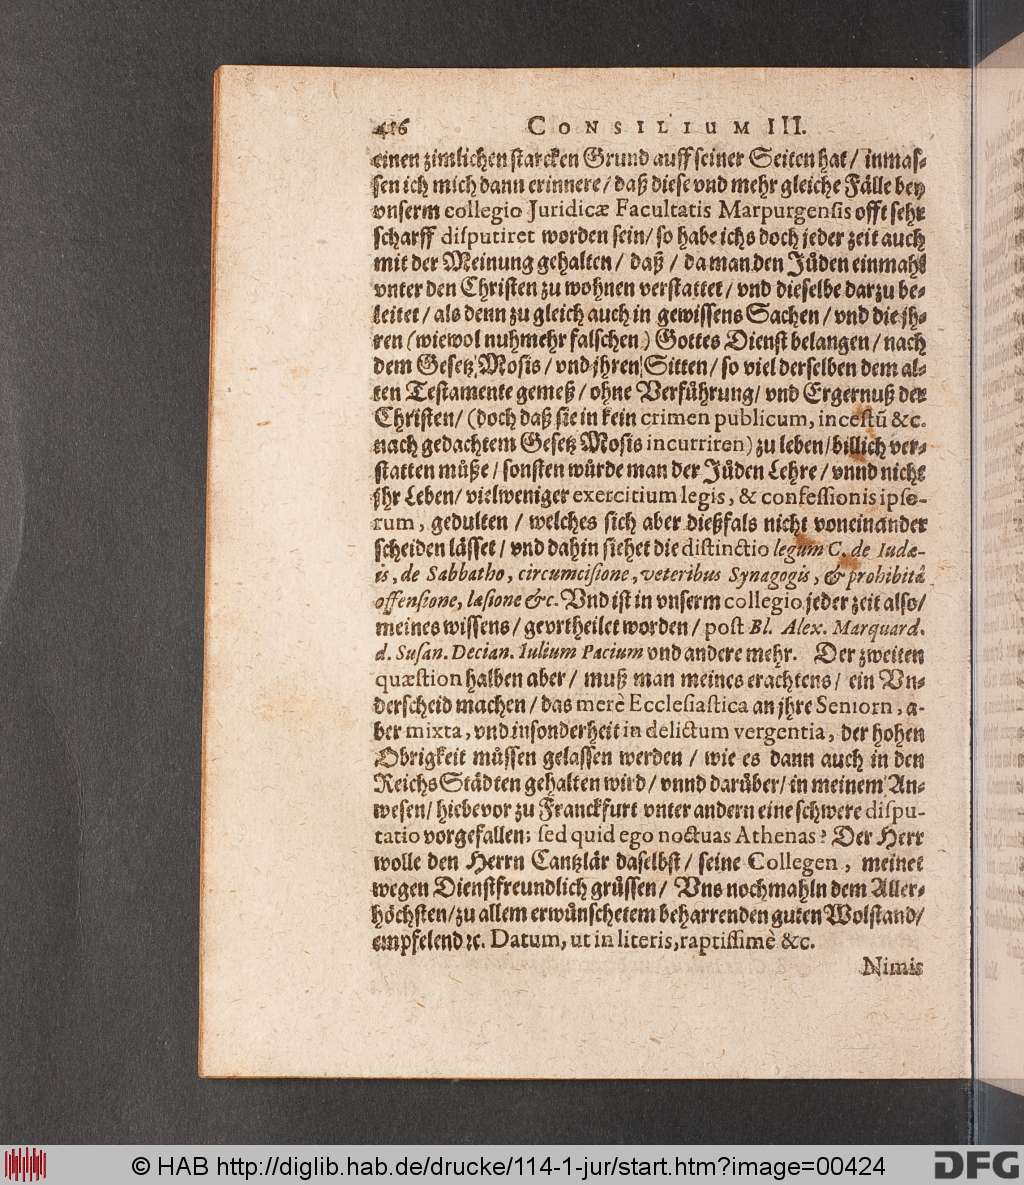 416 CONSILIUM III.
einen zimlichen starcken Grund auff seiner Seiten hat / inmas-
sen ich mich dann erinnere / daß diese vnd mehr gleiche Fälle bey
vnserm collegio Juridicæ Facultatis Marpurgensis offt sehr
scharff disputiret worden sein / so habe ichs doch jeder zeit auch
mit der Meinung gehalten / daß / da man den Jüden einmahl
vnter den Christen zu wohnen verstattet / vnd dieselbe darzu be-
leitet / als denn zu gleich auch in gewissens Sachen / vnd die jh-
ren (wiewol nuhmehr falschen) Gottes Dienst belangen / nach
dem Gesetz Mosis / vnd jhren Sitten / so viel derselben dem al-
ten Testamente gemeß / ohne Verführung / vnd Ergernuß der
Christen / (doch daß sie in kein crimen publicum, incestū &c.
nach gedachtem Gesetz Mosis incurriren) zu leben / billich ver-
statten müße / sonsten würde man der Jüden Lehre / vnnd nicht
jhr Leben / vielweniger exercitium legis, & confessionis ipso-
rum, gedulten / welches sich aber dießfals nicht voneinander
scheiden lässet / vnd dahin siehet die distinctio legum C. de Iudæ-
is, de Sabbatho, circumcisione, veteribus Synagogis, & prohibitâ
offensione, læsione &c. Vnd ist in vnserm collegio jeder zeit also /
meines wissens / geurtheilet worden / post Bl. Alex. Marquard.
d. Susan. Decian. Iulium Pacium vnd andere mehr. Der zweiten
quæstion halben aber / muß man meines erachtens / ein Vn-
derscheid machen / das merè Ecclesiastica an jhre Seniorn, a-
ber mixta, vnd insonderheit in delictum vergentia, der hohen
Obrigkeit müssen gelassen werden / wie es dann auch in den
Reichs Städten gehalten wird / vnnd darüber / in meinem An-
wesen / hiebevor zu Franckfurt vnter andern eine schwere dispu-
tatio vorgefallen; sed quid ego noctuas Athenas? Der Herr
wolle den Herrn Cantzlär daselbst / seine Collegen, meinet
wegen Dienstfreundlich grüssen / Vns nochmahln dem Aller-
höchsten / zu allem erwünschetem beharrenden guten Wolstand /
empfelend ꝛc. Datum, ut in literis, raptissimè &c.
Nimis
© HAB http://diglib.hab.de/drucke/114-1-jur/start.htm?image=00424
DFG